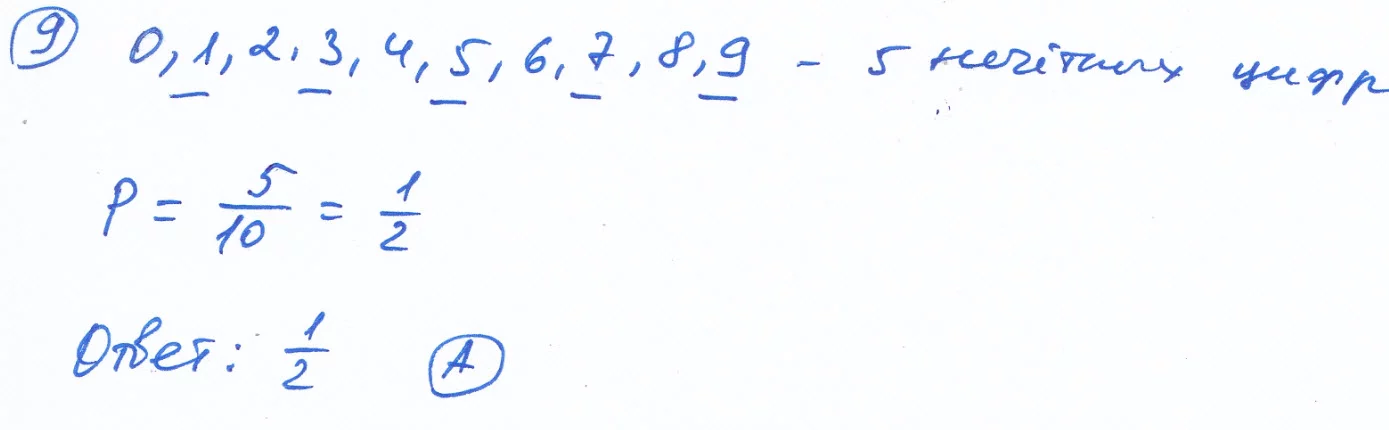 9 0, 1, 2, 3, 4, 5, 6, 7, 8, 9 - 5 нечётных цифр
P = 5/10 = 1/2
Ответ: 1/2 А